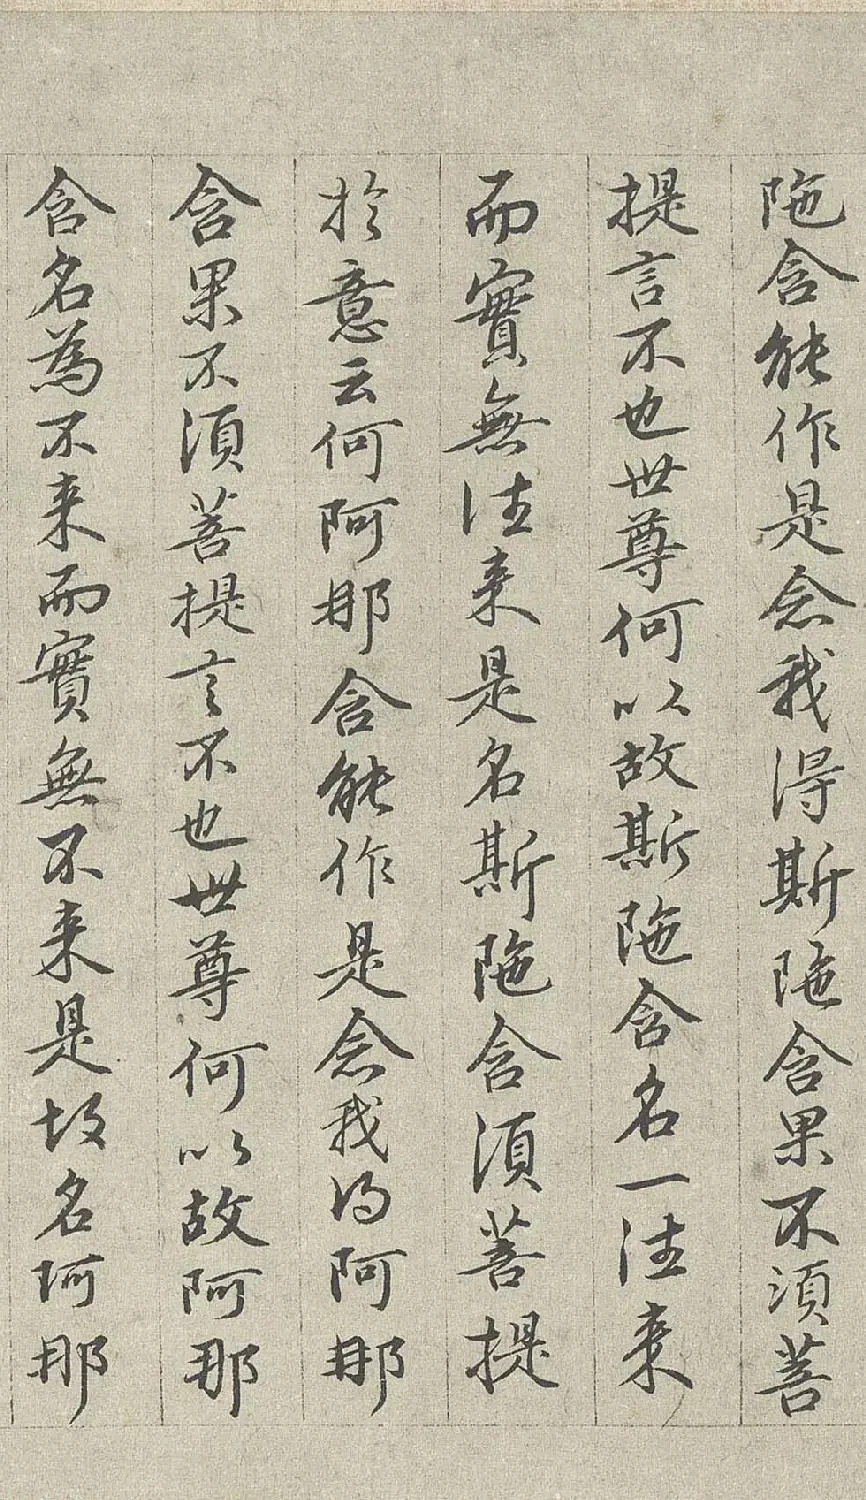 陁含能作是念我得斯陁含果不須菩
提言不也世尊何以故斯陁含名一往来
而實無往来是名斯陁含須菩提
於意云何阿那含能作是念我得阿那
含果不須菩提言不也世尊何以故阿那
含名為不来而實無不来是故名阿那